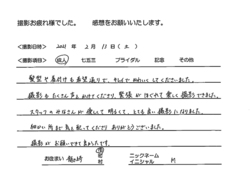 撮影お疲れ様でした。 感想をお願いいたします。
撮影日時》 2021年 2月 11日(土)
撮影項目》 成人 七五三 ブライダル 記念 その他
髪型や着付けも希望通りで、キレイでかわいくしてくださいました。
撮影もたくさん声をかけてくださり、緊張がほぐれて楽しく撮影できました。
スタッフのみなさんが優しくて明るくて、とても良い撮影になりました。
細かい所まで気を配ってくださりありがとうございました。
撮影がお願いできてよかったです。
お住まい 市 町 村 ニックネーム イニシャル M